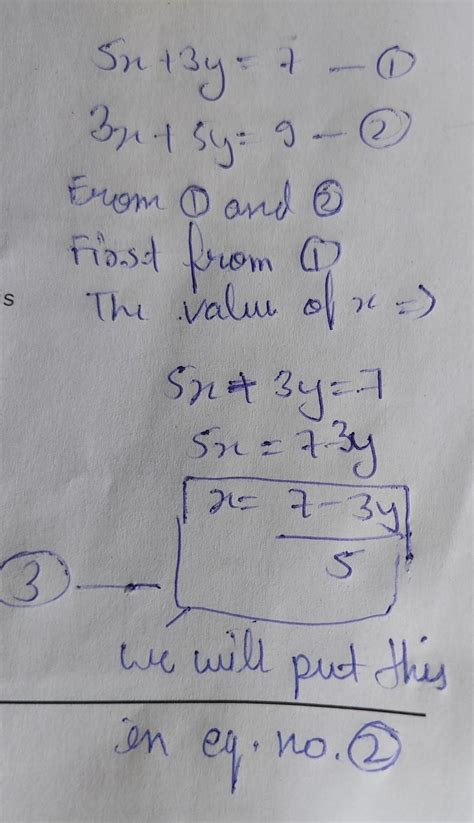 5x + 3y = 7 — ①
3x + 5y = 9 — ②
From ① and ②
First from ①
s
The value of x ⇒
5x + 3y = 7
5x = 7-3y
x = 7 - 3y
5
③ —
we will put this
in eq. no. ②